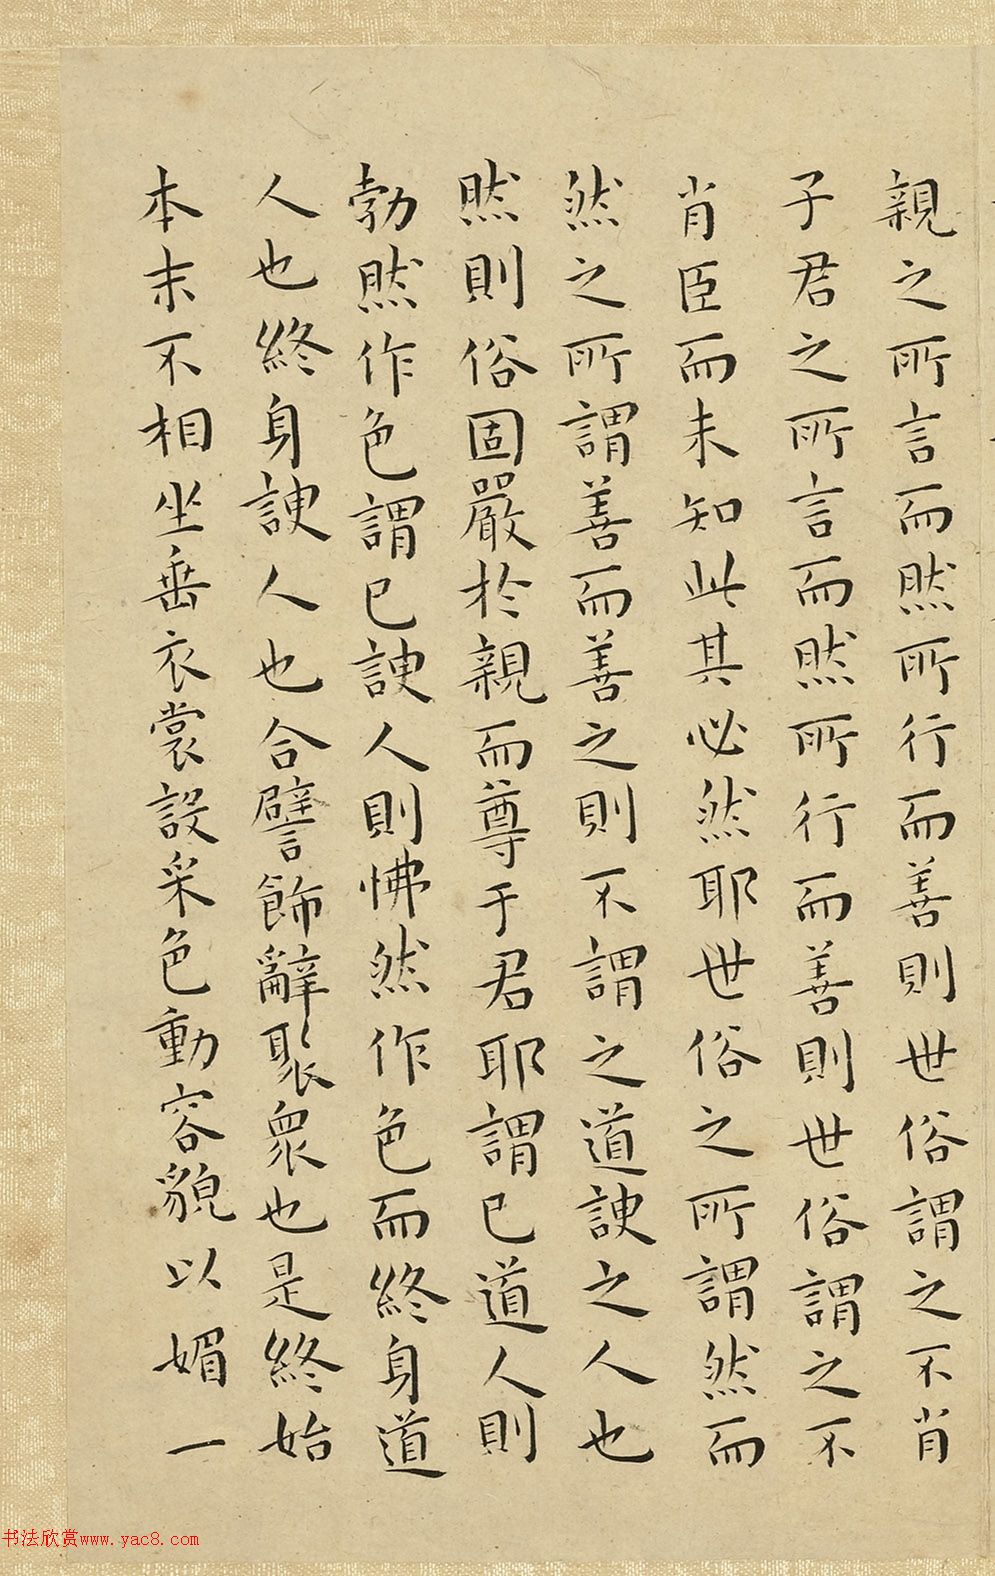 親之所言而然所行而善則世俗謂之不肖
子君之所言而然所行而善則世俗謂之不
肖臣而未知此其必然耶世俗之所謂然而
然之所謂善而善之則不謂之道諛之人也
然則俗固嚴於親而尊于君耶謂己道人則
勃然作色謂己諛人則怫然作色而終身道
人也終身諛人也合譬飾辭聚衆也是終始
本末不相坐垂衣裳設采色動容貌以媚一
书法欣赏www.yac8.com